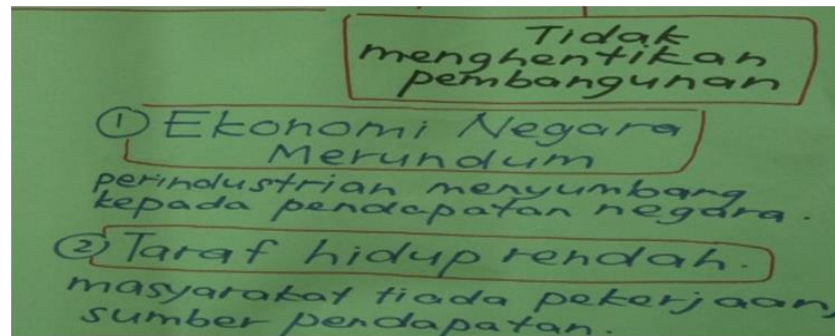 Tidak
menghentikan
pembangunan
① Ekonomi Negara
Merundum
perindustrian menyumbang
kepada pendapatan negara.
② Taraf hidup rendah.
masyarakat tiada pekerjaan,
sumber pendapatan.